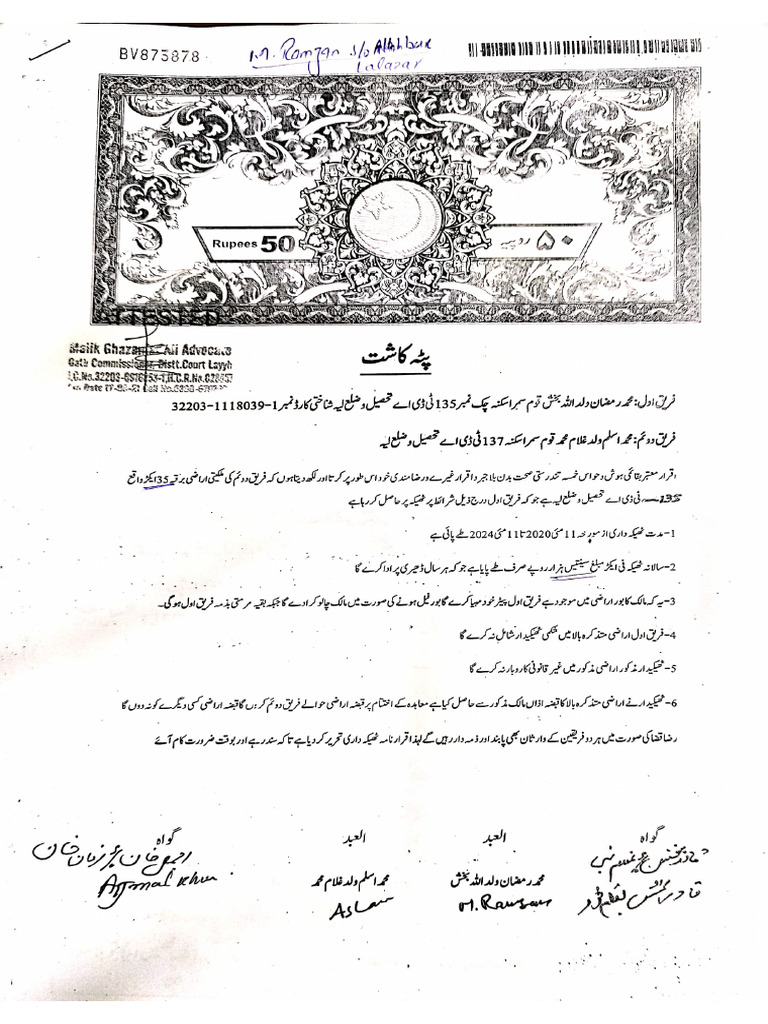 BV873878
M. Ramzan s/o Allah bux
Lalazar
Rupees 50
۵۰ روپے
ATTESTED
Malik Ghazanfar Ali Advocate
Oath Commissioner Distt.Court Layyh
پٹہ کاشت
فریق اول: محمد رمضان ولد اللہ بخش قوم سمرا سکنہ چک نمبر 135 ٹی ڈی اے تحصیل و ضلع لیہ شناختی کارڈ نمبر 1-1118039-32203
فریق دوئم: محمد اسلم ولد غلام محمد قوم سمرا سکنہ 137 ٹی ڈی اے تحصیل و ضلع لیہ
اقرار معتبر بقائمی ہوش و حواس خمسہ تندرستی صحت بدن بلا جبر و اقرار غیرے و رضا مندی خود اس طور پر کرتا اور لکھ دیتا ہوں کہ فریق دوئم کی ملکیتی اراضی برقبہ 35 ایکڑ واقع
ٹی ڈی اے تحصیل و ضلع لیہ ہے جو کہ فریق اول درج ذیل شرائط پر ٹھیکہ پر حاصل کر رہا ہے
1- مدت ٹھیکہ داری از مورخہ 11 مئی 2020 تا 11 مئی 2024 طے پائی ہے
2- سالانہ ٹھیکہ فی ایکڑ مبلغ سینتیس ہزار روپے صرف طے پایا ہے جو کہ ہر سال ڈھیری پر ادا کرے گا
3- یہ کہ مالک کا بور اراضی میں موجود ہے فریق اول پیٹر خود مہیا کرے گا بور فیل ہونے کی صورت میں مالک چالو کرا دے گا جبکہ بقیہ مرمتی بذمہ فریق اول ہوگی۔
4- فریق اول اراضی متذکرہ بالا میں شکمی ٹھیکیدار شامل نہ کرے گا
5- ٹھیکیدار مذکور اراضی مذکور میں غیر قانونی کاروبار نہ کرے گا
6- ٹھیکیدار نے اراضی متذکرہ بالا کا قبضہ اذاں مالک مذکور سے حاصل کیا ہے معاہدہ کے اختتام پر قبضہ اراضی حوالے فریق دوئم کروں گا قبضہ اراضی کسی دیگرے کو نہ دوں گا
رضا قضا کی صورت میں ہر دو فریقین کے وارثان بھی پابند اور ذمہ دار رہیں گے لہذا اقرار نامہ ٹھیکہ داری تحریر کر دیا ہے تاکہ سند رہے اور بوقت ضرورت کام آئے
گواہ العبد العبد گواہ
محمد رمضان ولد اللہ بخش محمد اسلم ولد غلام محمد
M. Ramzan Aslam Ajmal khan